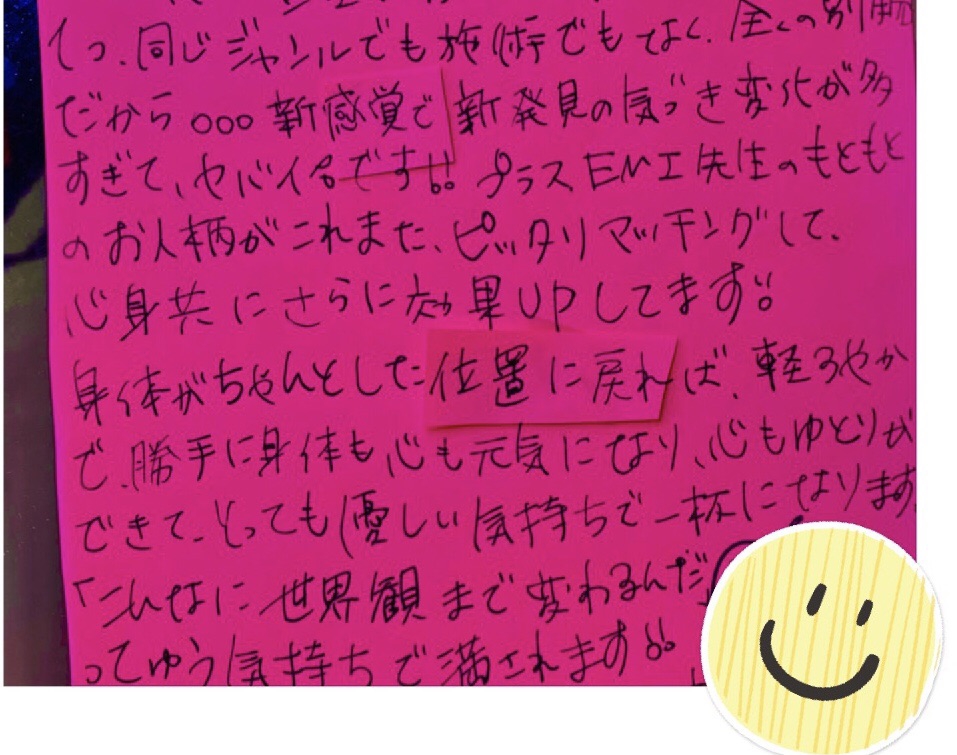 てっ、同じジャンルでも施術でもなく、全くの別物
だから。。。新感覚で新発見の気づき変化が多
すぎて、ヤバイくらいです!! プラスEMI先生のもともと
のお人柄がこれまた、ピッタリマッチングして、
心身共にさらに効果UPしてます!!
身体がちゃんとした位置に戻れば、軽ろやか
で、勝手に身体も心も元気になり、心もゆとりが
できて、とっても優しい気持ちで一杯になります。
「こんなに世界観まで変わるんだ」
ってゆう気持ちで満されます!!